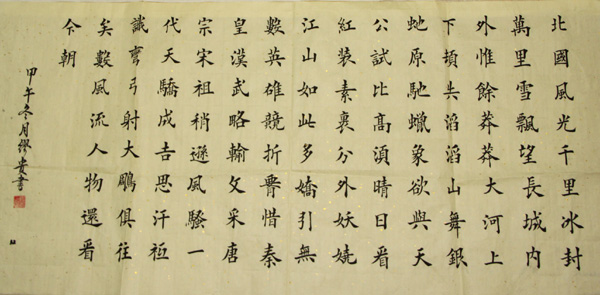 北國風光千里冰封
萬里雪飄望長城内
外惟餘莽莽大河上
下頓失滔滔山舞銀
虵原馳蠟象欲與天
公試比高須晴日看
紅装素裹分外妖嬈
江山如此多嬌引無
數英雄競折腰惜秦
皇漢武略輸文采唐
宗宋祖稍遜風騷一
代天驕成吉思汗衹
識彎弓射大鵰俱往
矣數風流人物還看
今朝
甲午冬月繆貴書